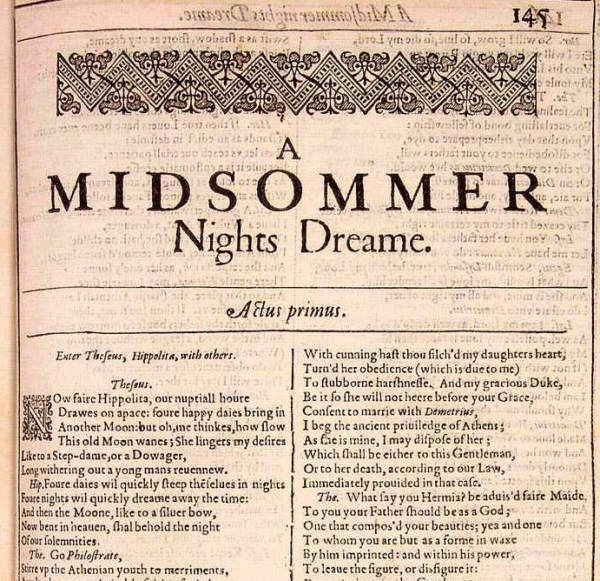 145
A
MIDSOMMER
Nights Dreame.
Actus primus.
Enter Theseus, Hippolita, with others.
Theseus.
NOw faire Hippolita, our nuptiall houre
Drawes on apace: foure happy daies bring in
Another Moon: but oh, me thinkes, how slow
This old Moon wanes; She lingers my desires
Like to a Step-dame, or a Dowager,
Long withering out a yong mans reuennew.
Hip. Foure daies wil quickly steep thẽselues in nights
Foure nights wil quickly dreame away the time:
And then the Moone, like to a siluer bow,
Now bent in heauen, shal behold the night
Of our solemnities.
The. Go Philostrate,
Stirre vp the Athenian youth to merriments,
With cunning hast thou filch'd my daughters heart,
Turn'd her obedience (which is due to me)
To stubborne harshnesse. And my gracious Duke,
Be it so she will not heere before your Grace,
Consent to marrie with Demetrius,
I beg the ancient priuiledge of Athens;
As she is mine, I may dispose of her;
Which shall be either to this Gentleman,
Or to her death, according to our Law,
Immediately prouided in that case.
The. What say you Hermia? be aduis'd faire Maide,
To you your Father should be as a God;
One that compos'd your beauties; yea and one
To whom you are but as a forme in waxe
By him imprinted: and within his power,
To leaue the figure, or disfigure it: